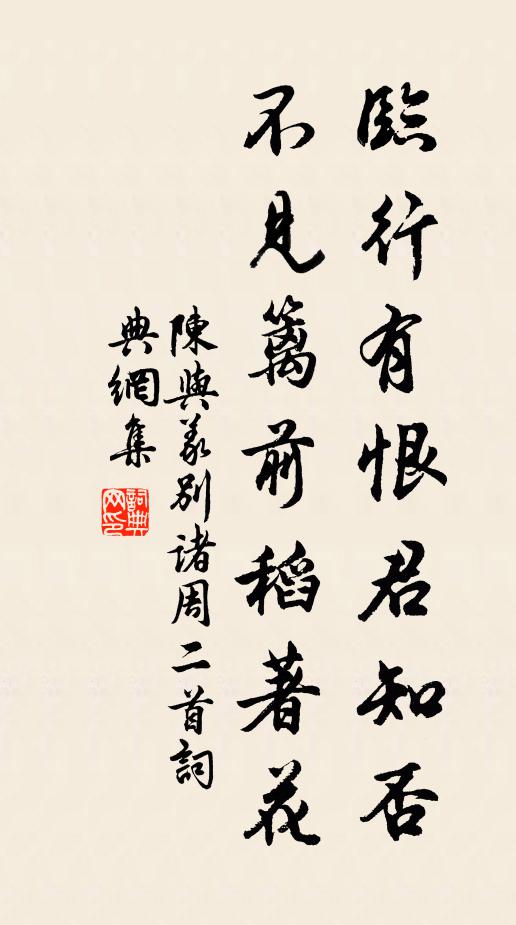 臨行有恨君知否
不見籬前稻著花
陳與義別諸周二首詞
典網集
詞典
网印